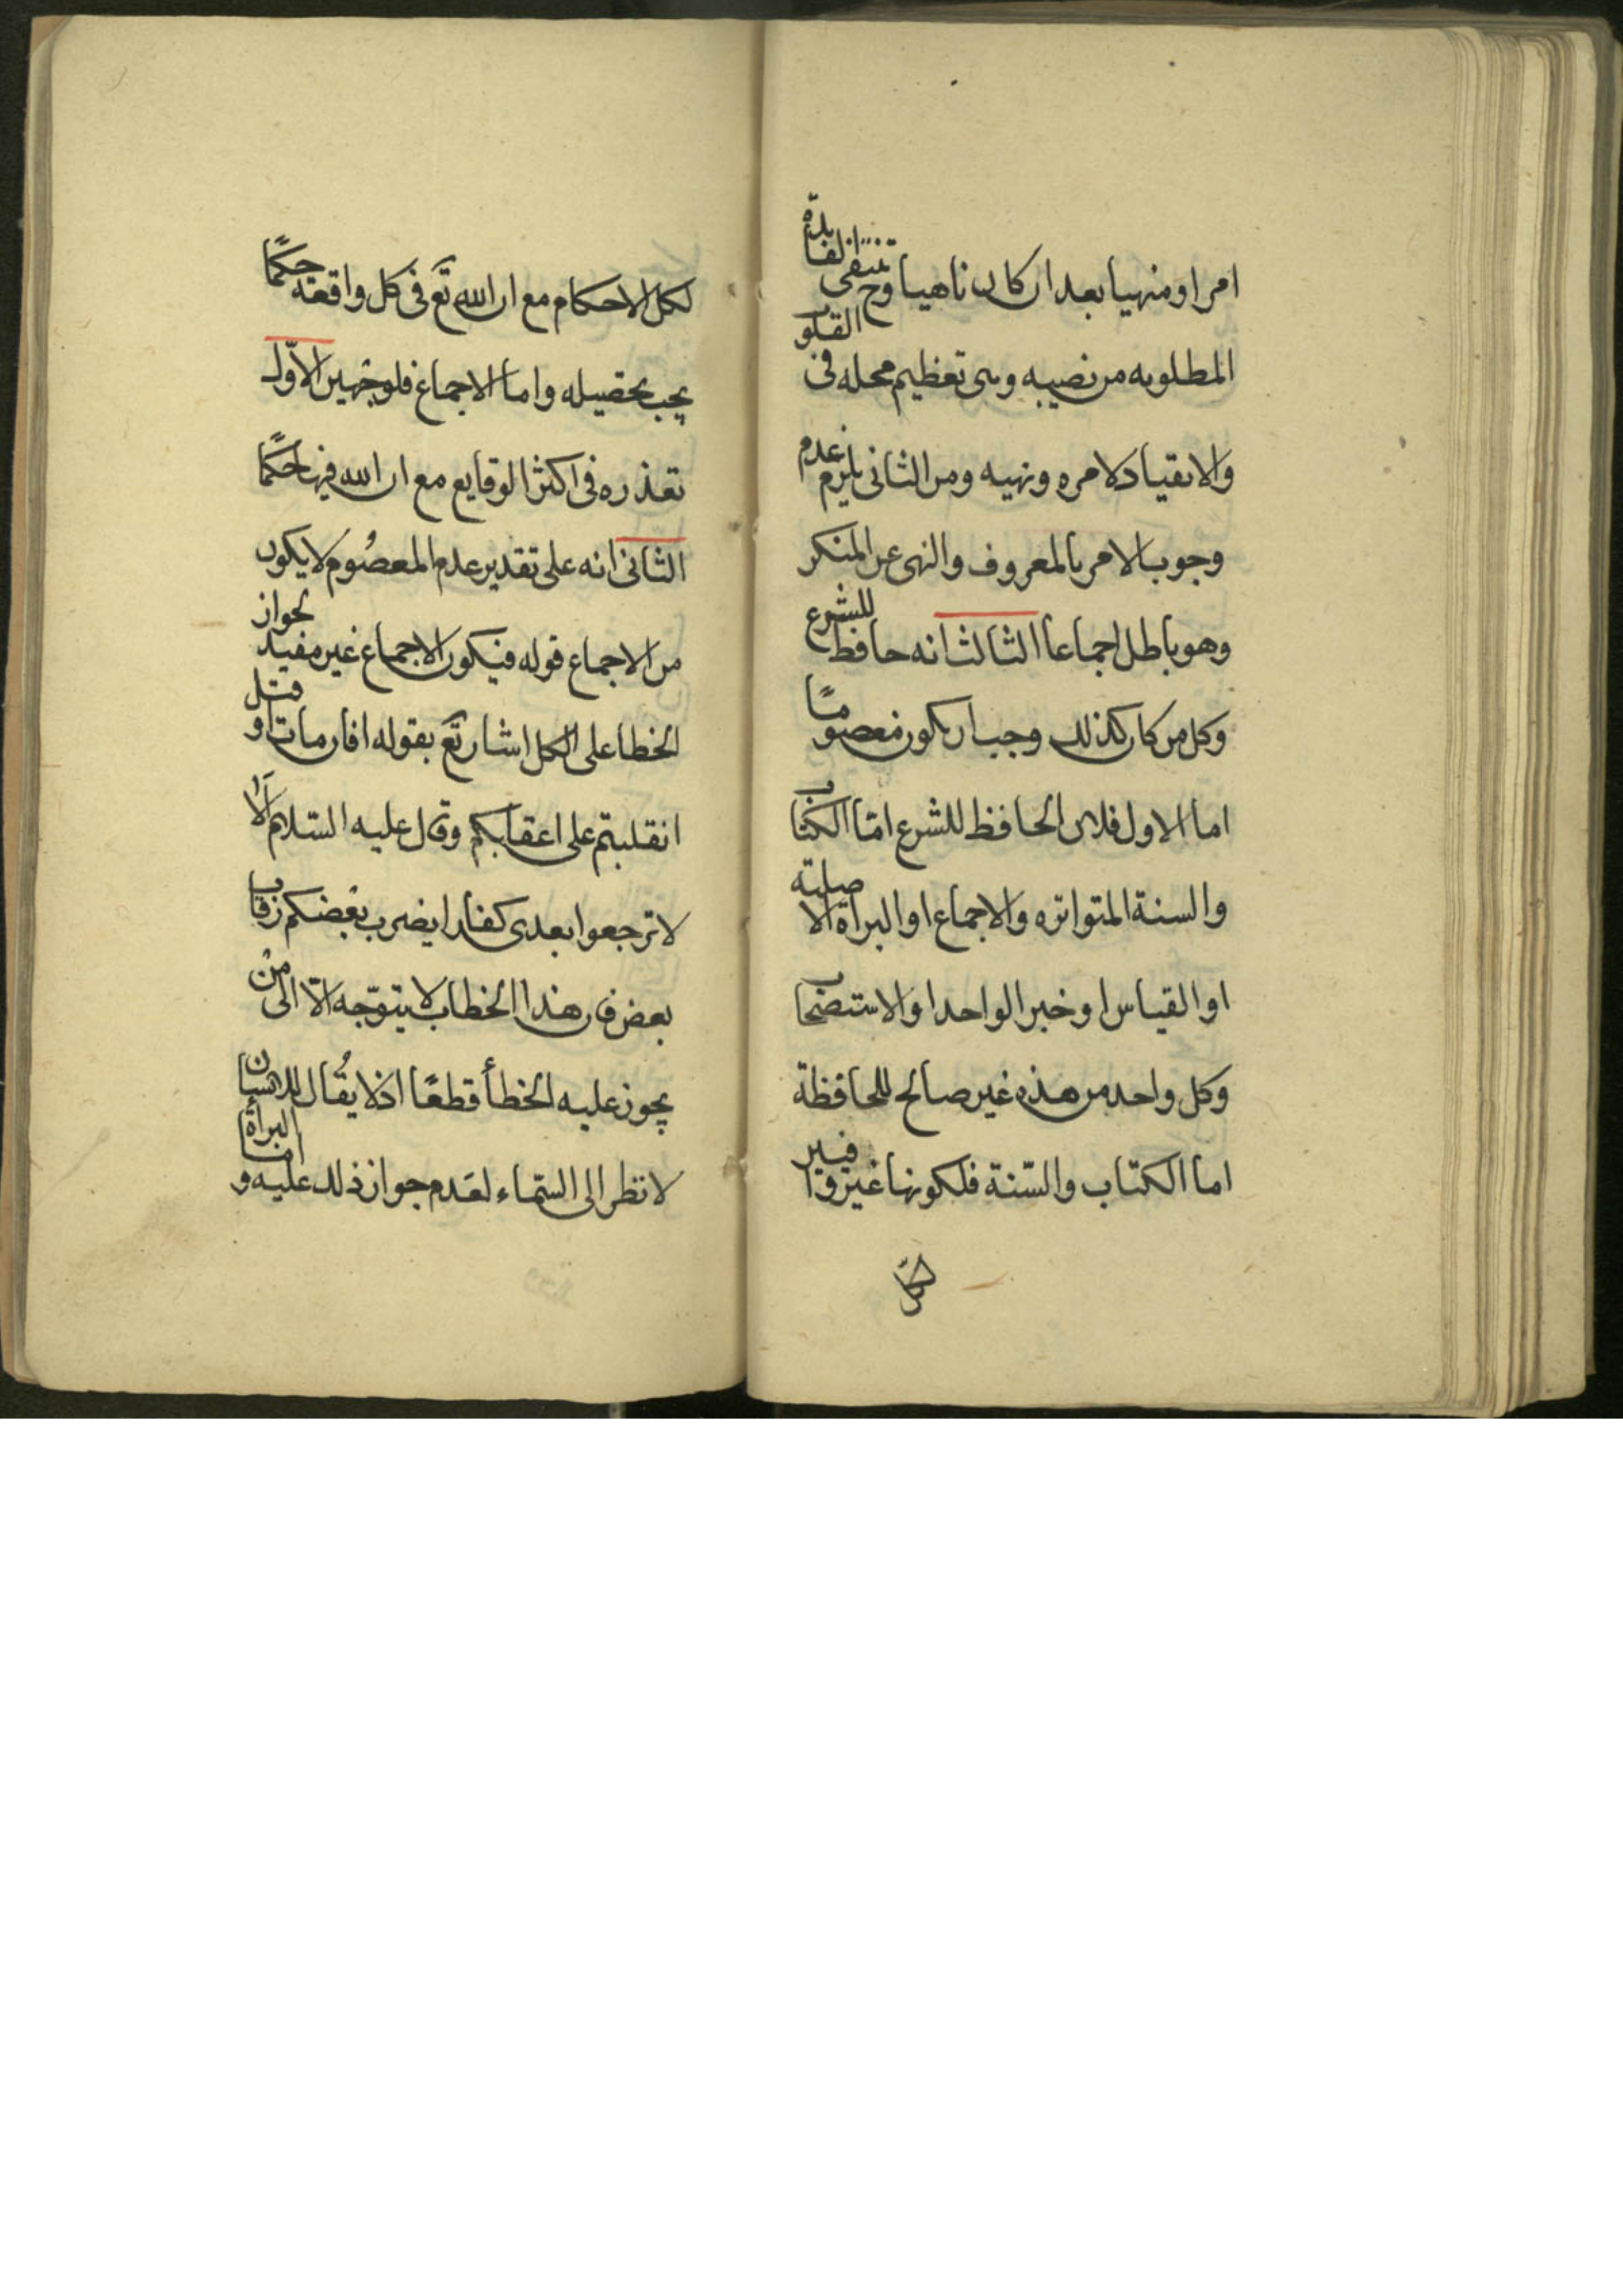 امرا ومنهيا بعد ان كان ناهيا وح تنتفى الفايدة
المطلوبه من نصبه وهى تعظيم محله فى القلوب
والانقياد لامره ونهيه ومن الثانى يلزم عدم
وجوب الامر بالمعروف والنهى عن المنكر
وهو باطل اجماعا الثالث انه حافظ للشرع
وكل من كان كذلك وجب ان يكون معصومًا
اما الاول فلان الحافظ للشرع امّا الكتاب
والسنة المتواتره والاجماع او البراة الاصلية
او القياس او خبر الواحد او الاستصحاب
وكل واحد من هذه غير صالح للمحافظة
اما الكتاب والسّنة فلكونها غير وافيين
لكل الاحكام مع ان الله تع فى كل واقعة حكمًا
يجب تحصيله واما الاجماع فلوجهين الاوّل
تعذره فى اكثر الوقايع مع ان الله فيها حكمًا
الثانى انه على تقدير عدم المعصوم لا يكون
من الاجماع قوله فيكون الاجماع غير مفيد لجواز
الخطا على الكل اشار تع بقوله افان مات او قتل
انقلبتم على اعقابكم وقال عليه السّلام الا
لا ترجعوا بعدى كفارا يضرب بعضكم رقاب
بعض فان هذا الخطاب لا يتوجّه الّا الى من
يجوز عليه الخطأ قطعًا اذ لا يقال للانسان
لا تطر الى السّماء لعدم جواز ذلك عليه و اما البرأة